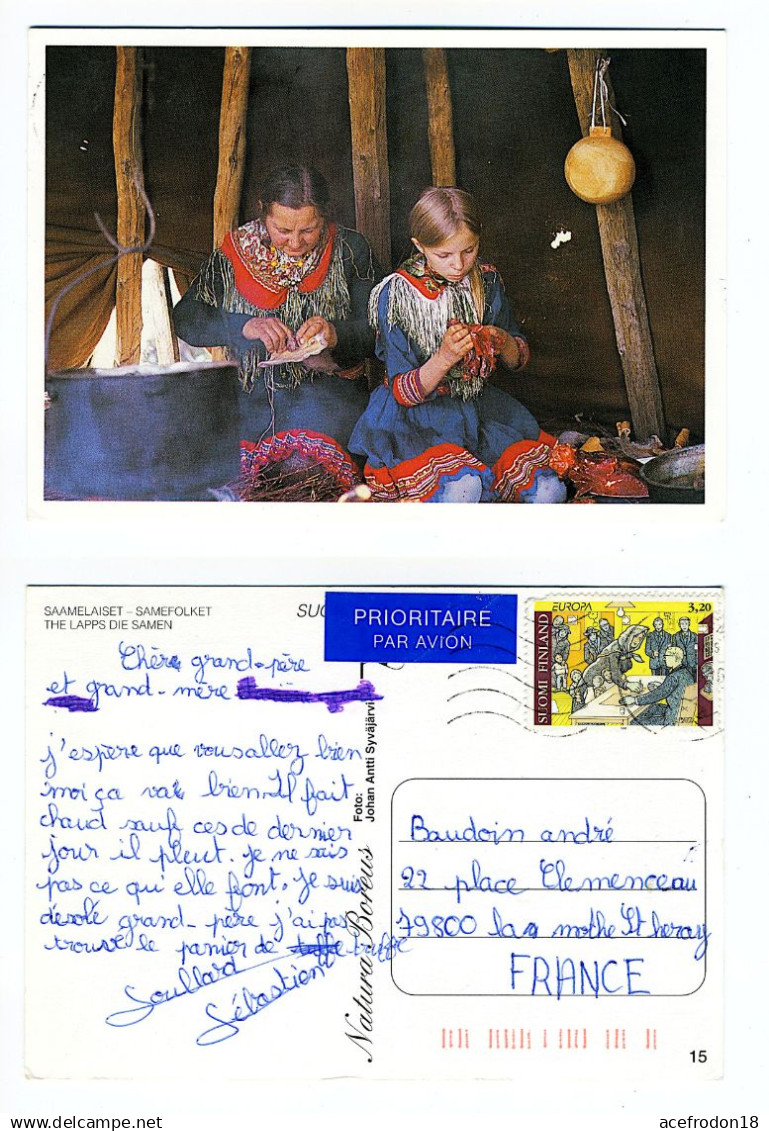 SAAMELAISET – SAMEFOLKET
THE LAPPS DIE SAMEN
PRIORITAIRE
PAR AVION
EUROPA
3,20
SUOMI FINLAND
Chère grand-père
et grand-mère
j'espere que vous allez bien
moi ça va bien. Il fait
chaud sauf ces de dernier
jour il pleut. je ne sais
pas ce qui elle font. Je suis
désolé grand-père j'ai pas
trouve le panier de truffe
Soullard
Sébastien
Foto:
Johan Antti Syväjärvi
Natura Boreus
Baudoin andré
22 place Clemenceau
79800 la mothe St heray
FRANCE
15
acefrodon18